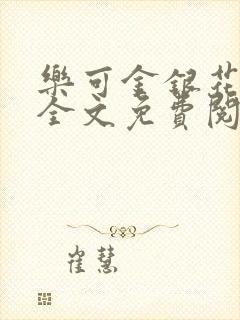 樂可金銀花
全文免費閱
崔慧